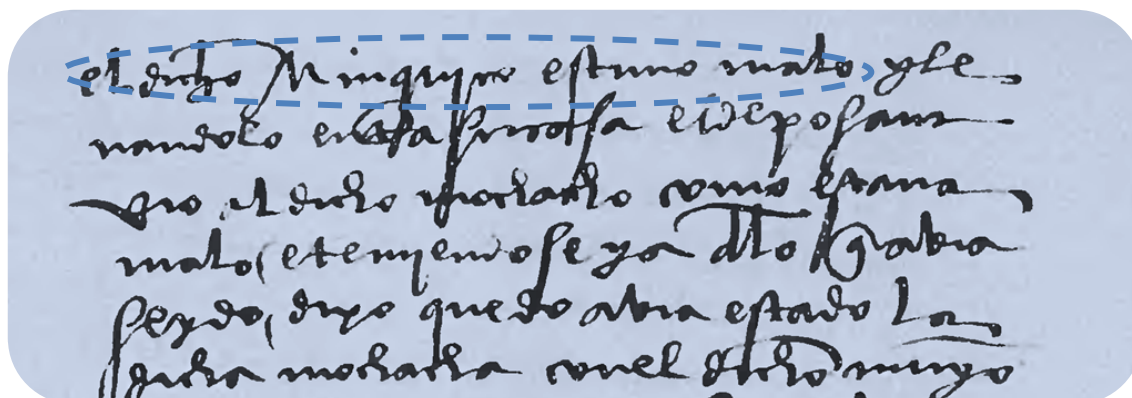 el dicho Minquyco estuvo malo y le
vandolo en casa su costa el deposant
vio al dicho mochacho como estava
malo, e temyendose ya dello q avia
seydo, dixo quedo avia estado la
dicha mochacha con el dicho mungo